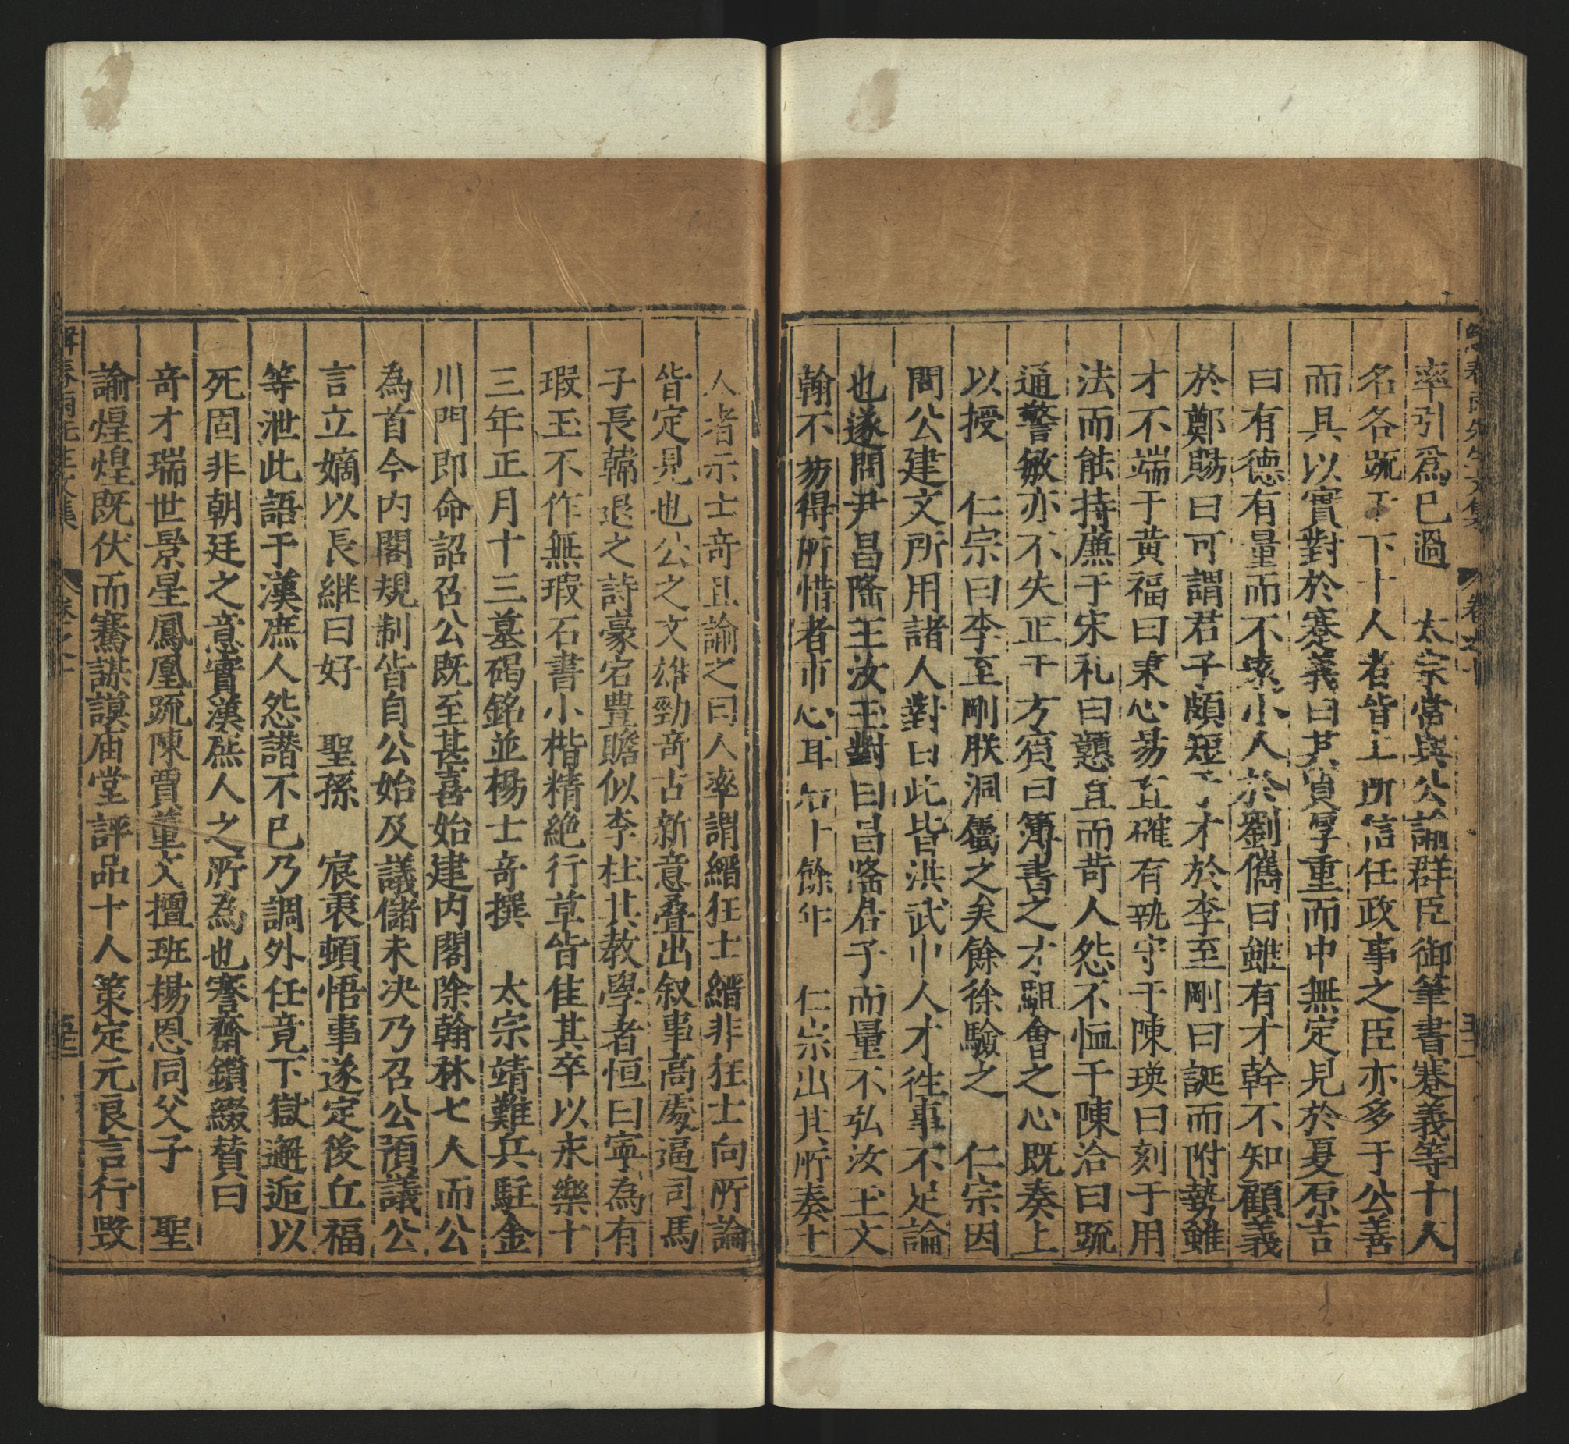 率引爲已過　太宗嘗與公論群臣御筆書蹇義等十人
名各疏于下十人者皆上所信任政事之臣亦多于公善
而具以實對於蹇義曰其資厚重而中無定見於夏原吉
曰有德有量而不遠小人於劉儁曰雖有才幹不知顧義
於鄭賜曰可謂君子頗短于才於李至剛曰誕而附勢雖
才不端于黃福曰秉心易直確有執守于陳瑛曰刻于用
法而能持廉于宋礼曰戇直而苛人怨不恤于陳洽曰疏
通警敏亦不失正于方賔曰簿書之才駔會之心既奏上
以授　仁宗曰李至剛朕洞屬之矣餘徐驗之　仁宗因
問公建文所用諸人對曰此皆洪武中人才徃事不足論
也遂問尹昌隆王汝玉對曰昌隆君子而量不弘汝玉文
翰不易得所惜者市心耳后十餘年　仁宗出其所奏十
人者示士奇且諭之曰人率謂縉狂士縉非狂士向所論
皆定見也公之文雄勁奇古新意叠出叙事高處逼司馬
子長韓退之詩豪宕豊贍似李杜其教學者恒曰寧為有
瑕玉不作無瑕石書小楷精絶行草皆佳其卒以永樂十
三年正月十三墓碣銘並楊士奇撰　太宗靖難兵駐金
川門即命詔召公既至甚喜始建内閣除翰林七人而公
為首今内閣規制皆自公始及議儲未決乃召公預議公
言立嫡以長継曰好　聖孫　宸衷頓悟事遂定後丘福
等泄此語于漢庶人怨譖不已乃調外任竟下獄邂逅以
死固非朝廷之意實漢庶人之所為也謇齋鎖綴賛曰
奇才瑞世景星鳳凰疏陳賈董文擅班楊恩同父子　聖
諭煌煌既伏而騫謀謨庙堂評品十人策定元良言行敗